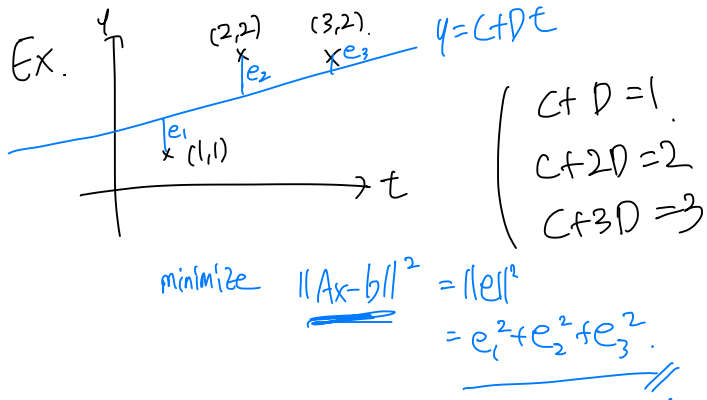 Ex.
y
(2,2)
(3,2).
y = C+Dt
e₂
e₃
e₁
(1,1)
t
C+ D = 1.
C+2D = 2
C+3D = 3
minimize ||Ax-b||² = ||e||²
= e₁² + e₂² + e₃².